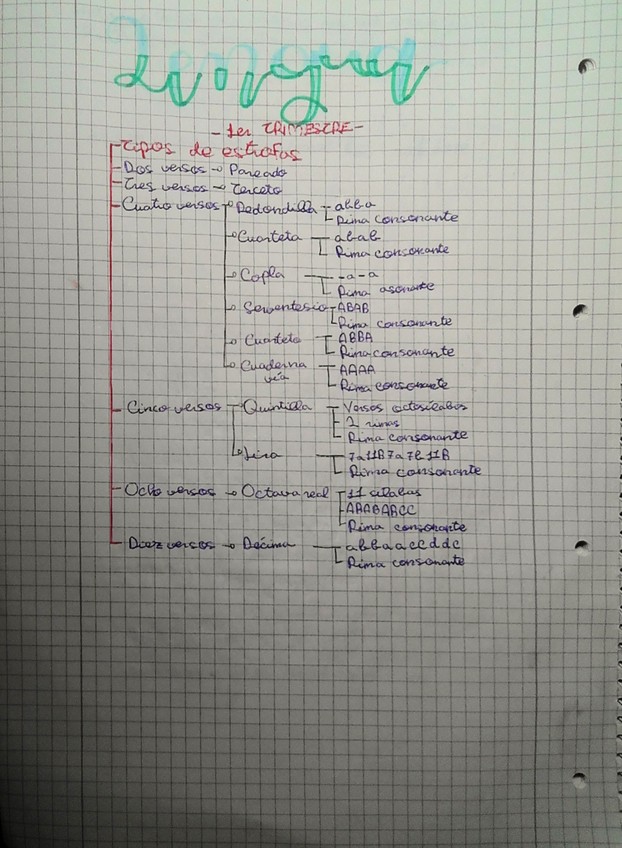 Lengua
-1er TRIMESTRE-
Tipos de estrofas
Dos versos → Pareado
Tres versos → Terceto
Cuatro versos → Redondilla abba
Rima consonante
Cuarteta abab
Rima consonante
Copla -a-a
Rima asonante
Serventesio ABAB
Rima consonante
Cuarteto ABBA
Rima consonante
Cuaderna AAAA
vía
Rima consonante
Cinco versos Quintilla Versos octosílabos
2 rimas
Rima consonante
Lira 7a11B7a7b11B
Rima consonante
Ocho versos → Octava real 11 sílabas
ABABABCC
Rima consonante
Diez versos → Décima abbaaccddc
Rima consonante